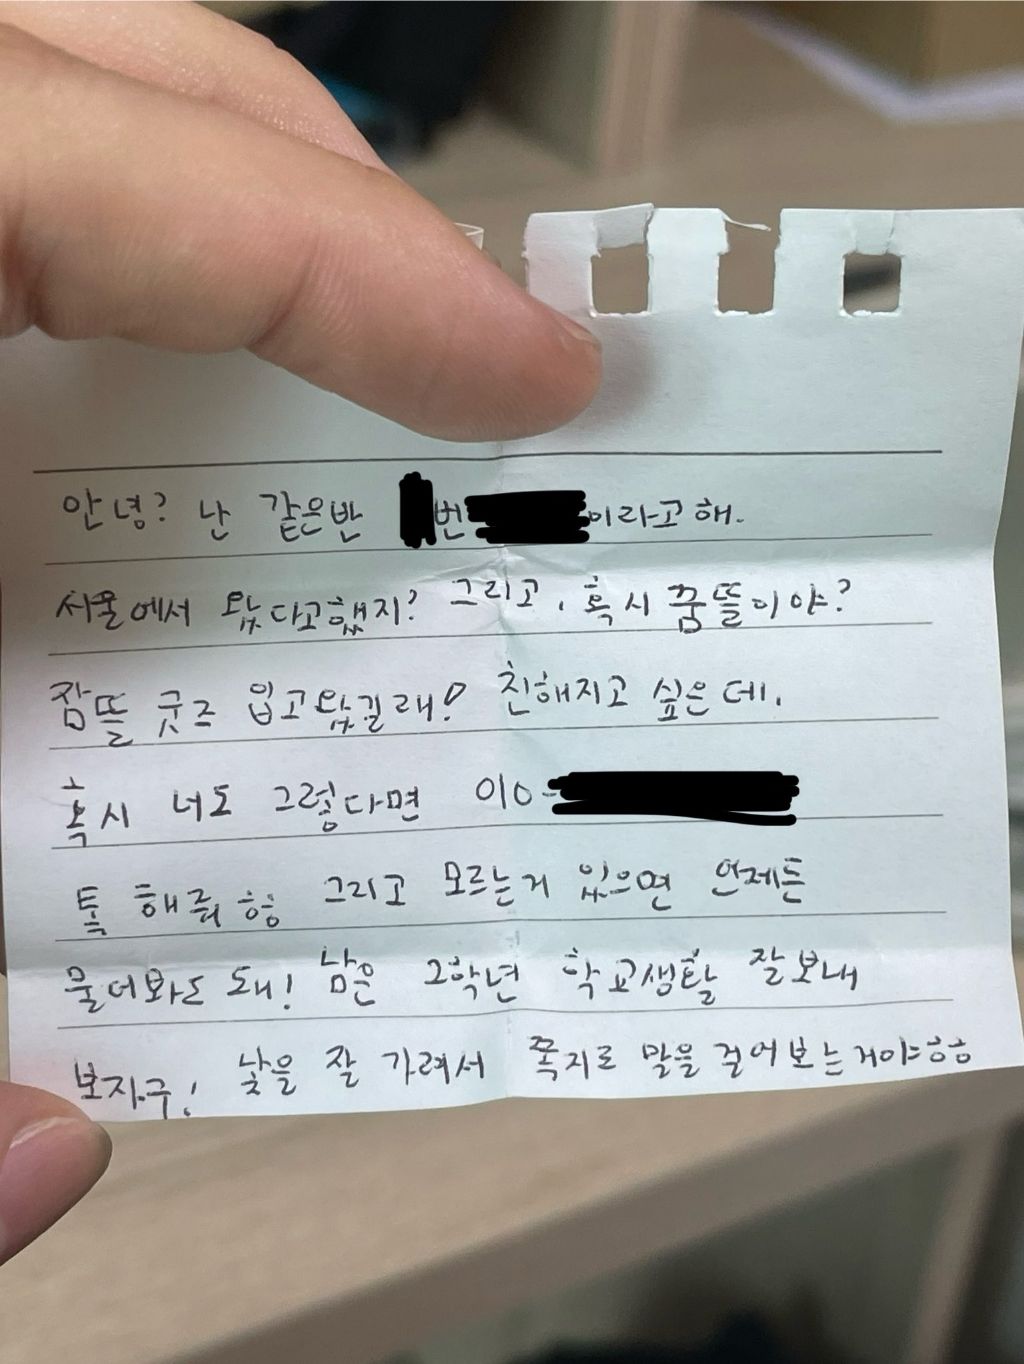 안녕? 난 같은반 번 이라고해.
서울에서 왔다고했지? 그리고, 혹시 꿈뜰이야?
잠뜰 굿즈 입고왔길래! 친해지고 싶은데,
혹시 너도 그렇다면 010-
톡 해줘 힝 그리고 모르는거 있으면 언제든
물어봐도 돼! 남은 2학년 학교생활 잘 보내
보자구! 낯을 잘 가려서 쪽지로 말을 걸어보는거야ㅎㅎ